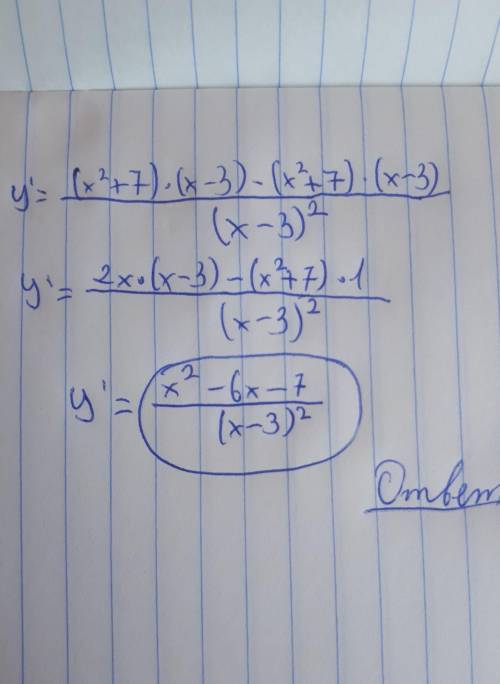 y' = (x²+7)·(x-3) - (x²+7)·(x-3) / (x-3)²
y' = 2x·(x-3) - (x²+7)·1 / (x-3)²
y' = x² - 6x - 7 / (x-3)²
Ответ